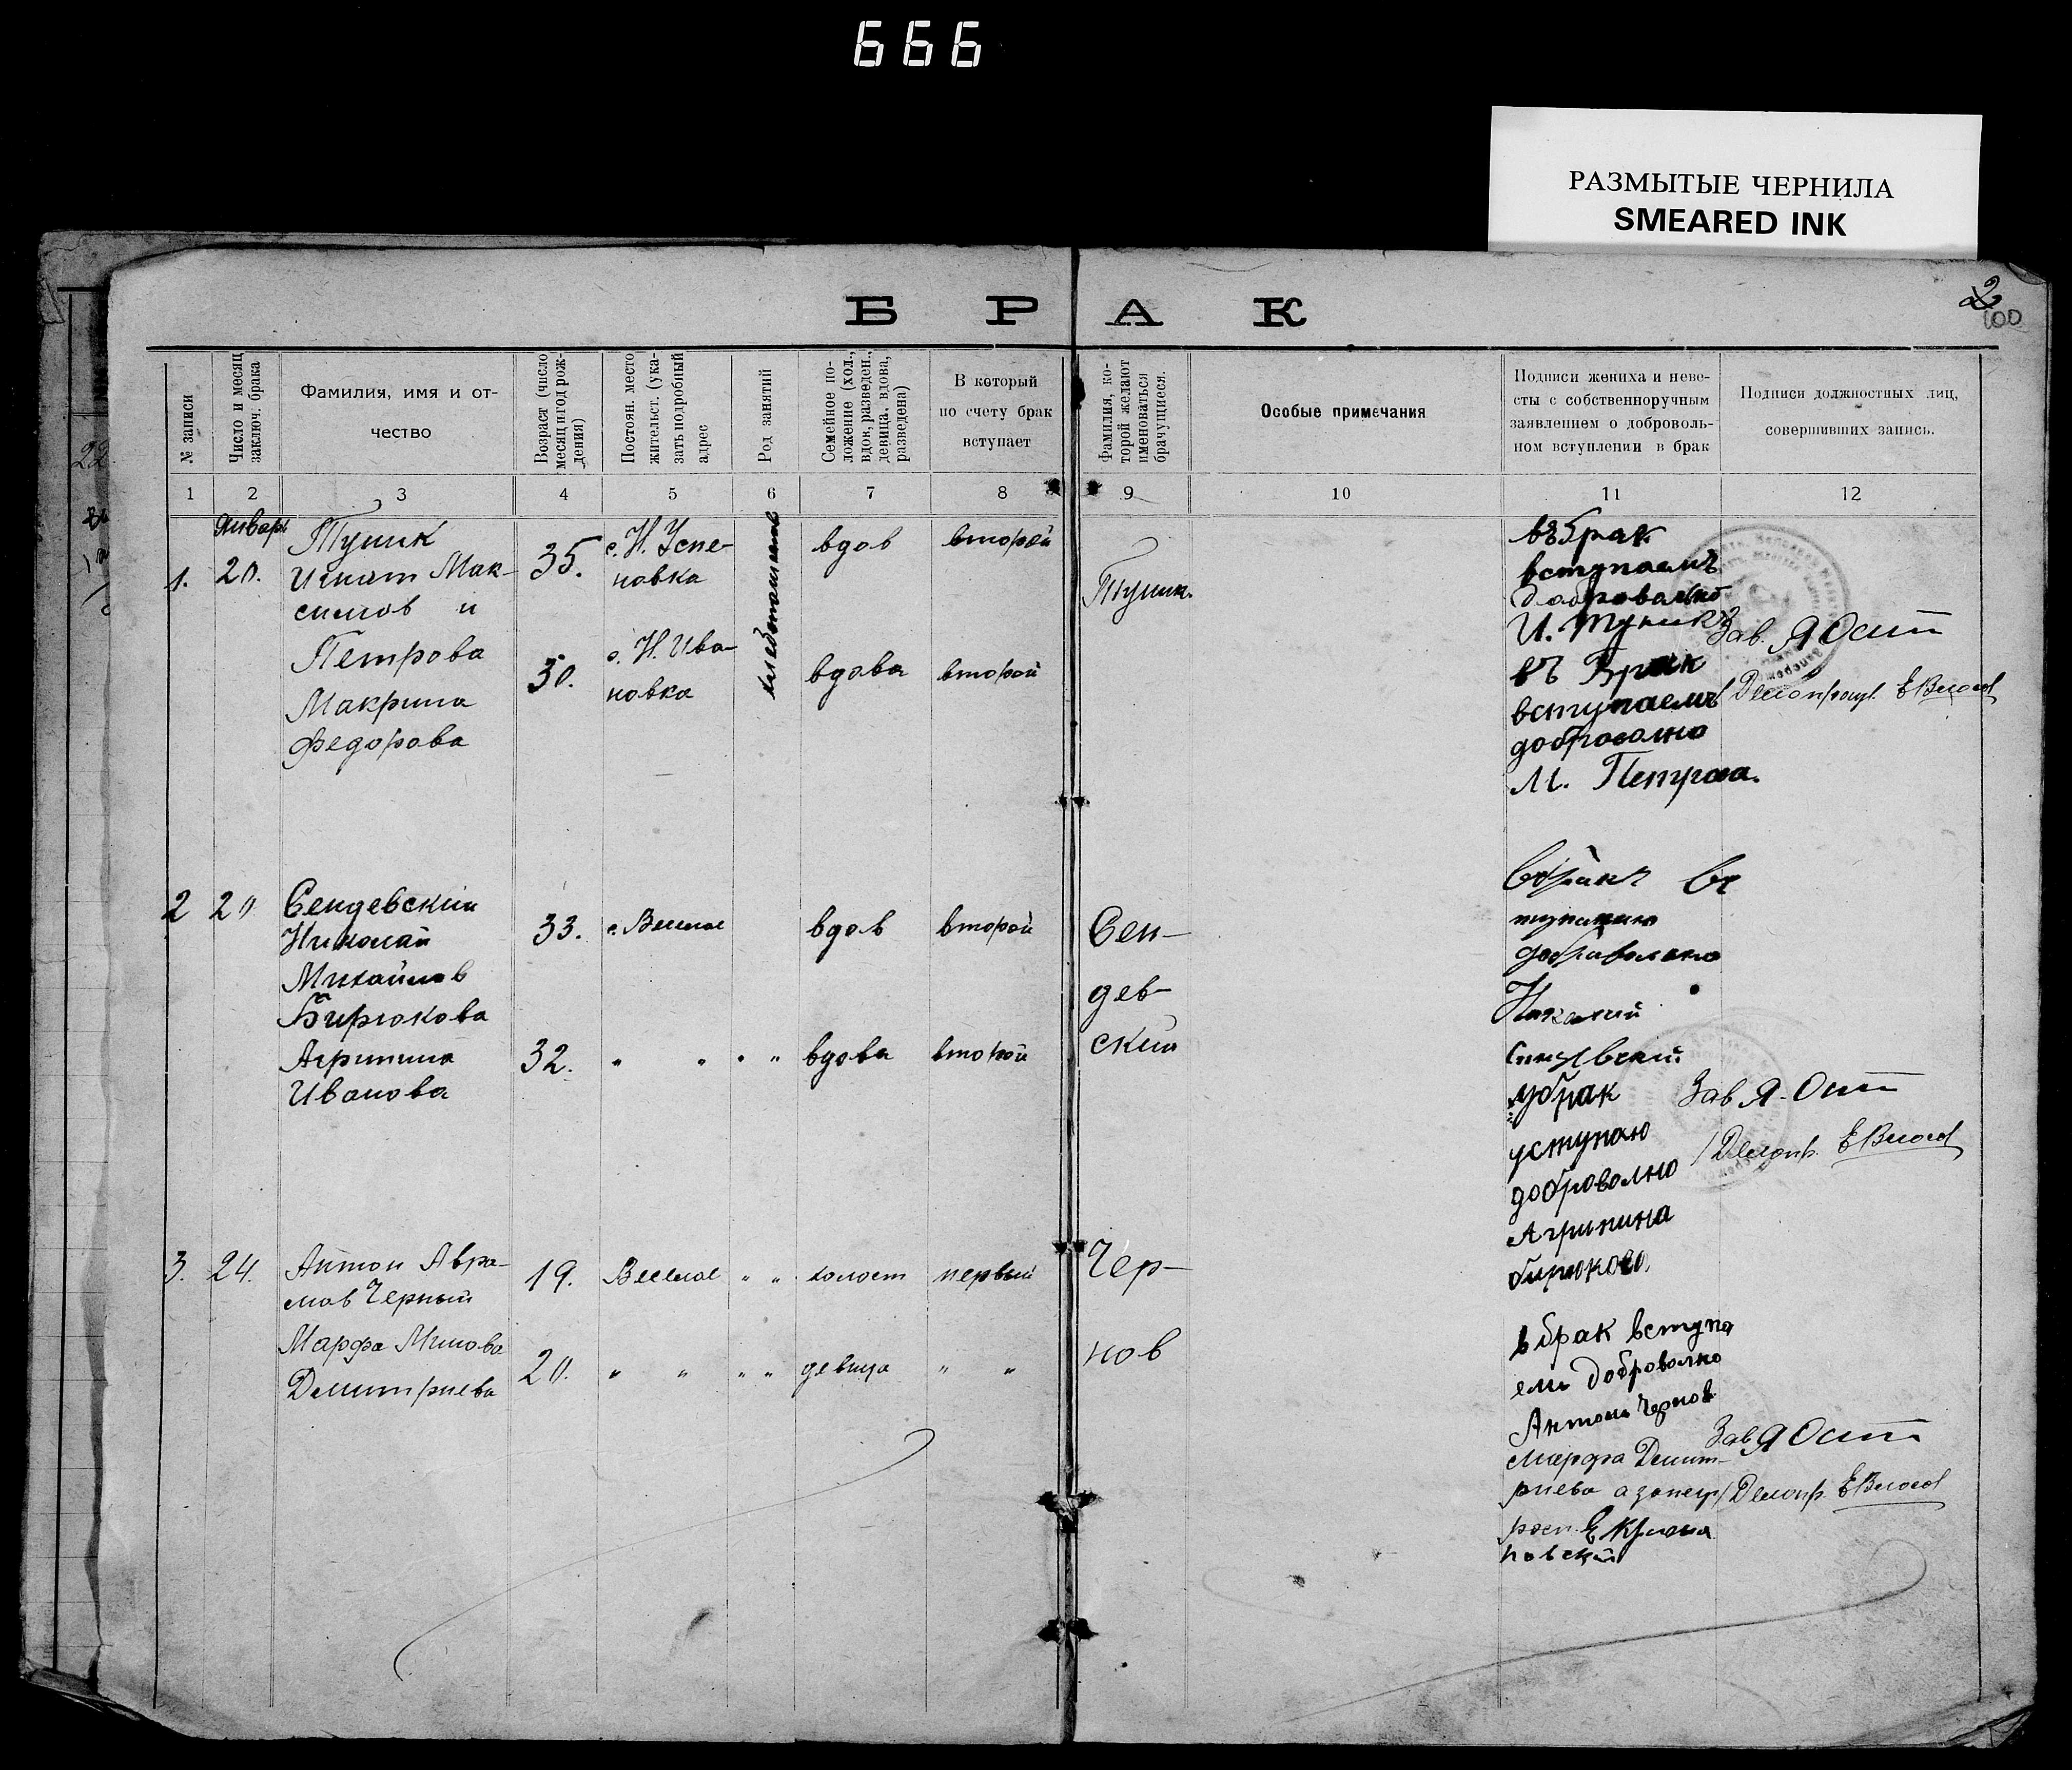 666
РАЗМЫТЫЕ ЧЕРНИЛА
SMEARED INK
2
100
БРАК
№ записи
Число и месяц
заключ. брака
Фамилия, имя и от-
чество
Возраст (число
месяц и год рож-
дения)
Постоян. место
жительст. (ука-
зать подробный
адрес
Род занятий
Семейное по-
ложение (хол.,
вдов, разведен.,
девица, вдова,
разведена)
В который
по счету брак
вступает
Фамилия, ко-
торой желают
именоваться
брачущиеся.
Особые примечания
Подписи жениха и неве-
сты с собственноручным
заявлением о доброволь-
ном вступлении в брак
Подписи должностных лиц,
совершивших запись.
1 2 3 4 5 6 7 8 9 10 11 12
Январь
1. 20.
Тупик
Игнат Мак-
симов и
Петрова
Макрина
Федорова
35.
с. Н. Успе-
новка
30.
с. Н. Ива-
новка
хлебопашец
вдов второй
вдова второй
Тупик.
въ брак
вступаемъ
добровольно
И. Тупикъ
въ Брак
вступаемъ
доброволно
М. Петрова.
Зав. Я Осит
2 20
Сендевский
Николай
Михайлов
Бирюкова
Агрипина
Иванова
33. с. Веселое вдов второй
32. " " " " вдова второй
Сен-
дев-
ский
добравольно
Николай
убрак
уступаю
доброволно
Агрипина
бирюкова
Зав Я. Осит
3. 24.
Антон Авра-
мов Черный
Марфа Минова
Дмитриева
19. Веселое " " холост первый
20. " " " " девица " "
Чер-
нов
в брак вступа
ем доброволно
Антонъ Чернов
Марфа Дмит-
риева а за неgr
Зав Я Осит